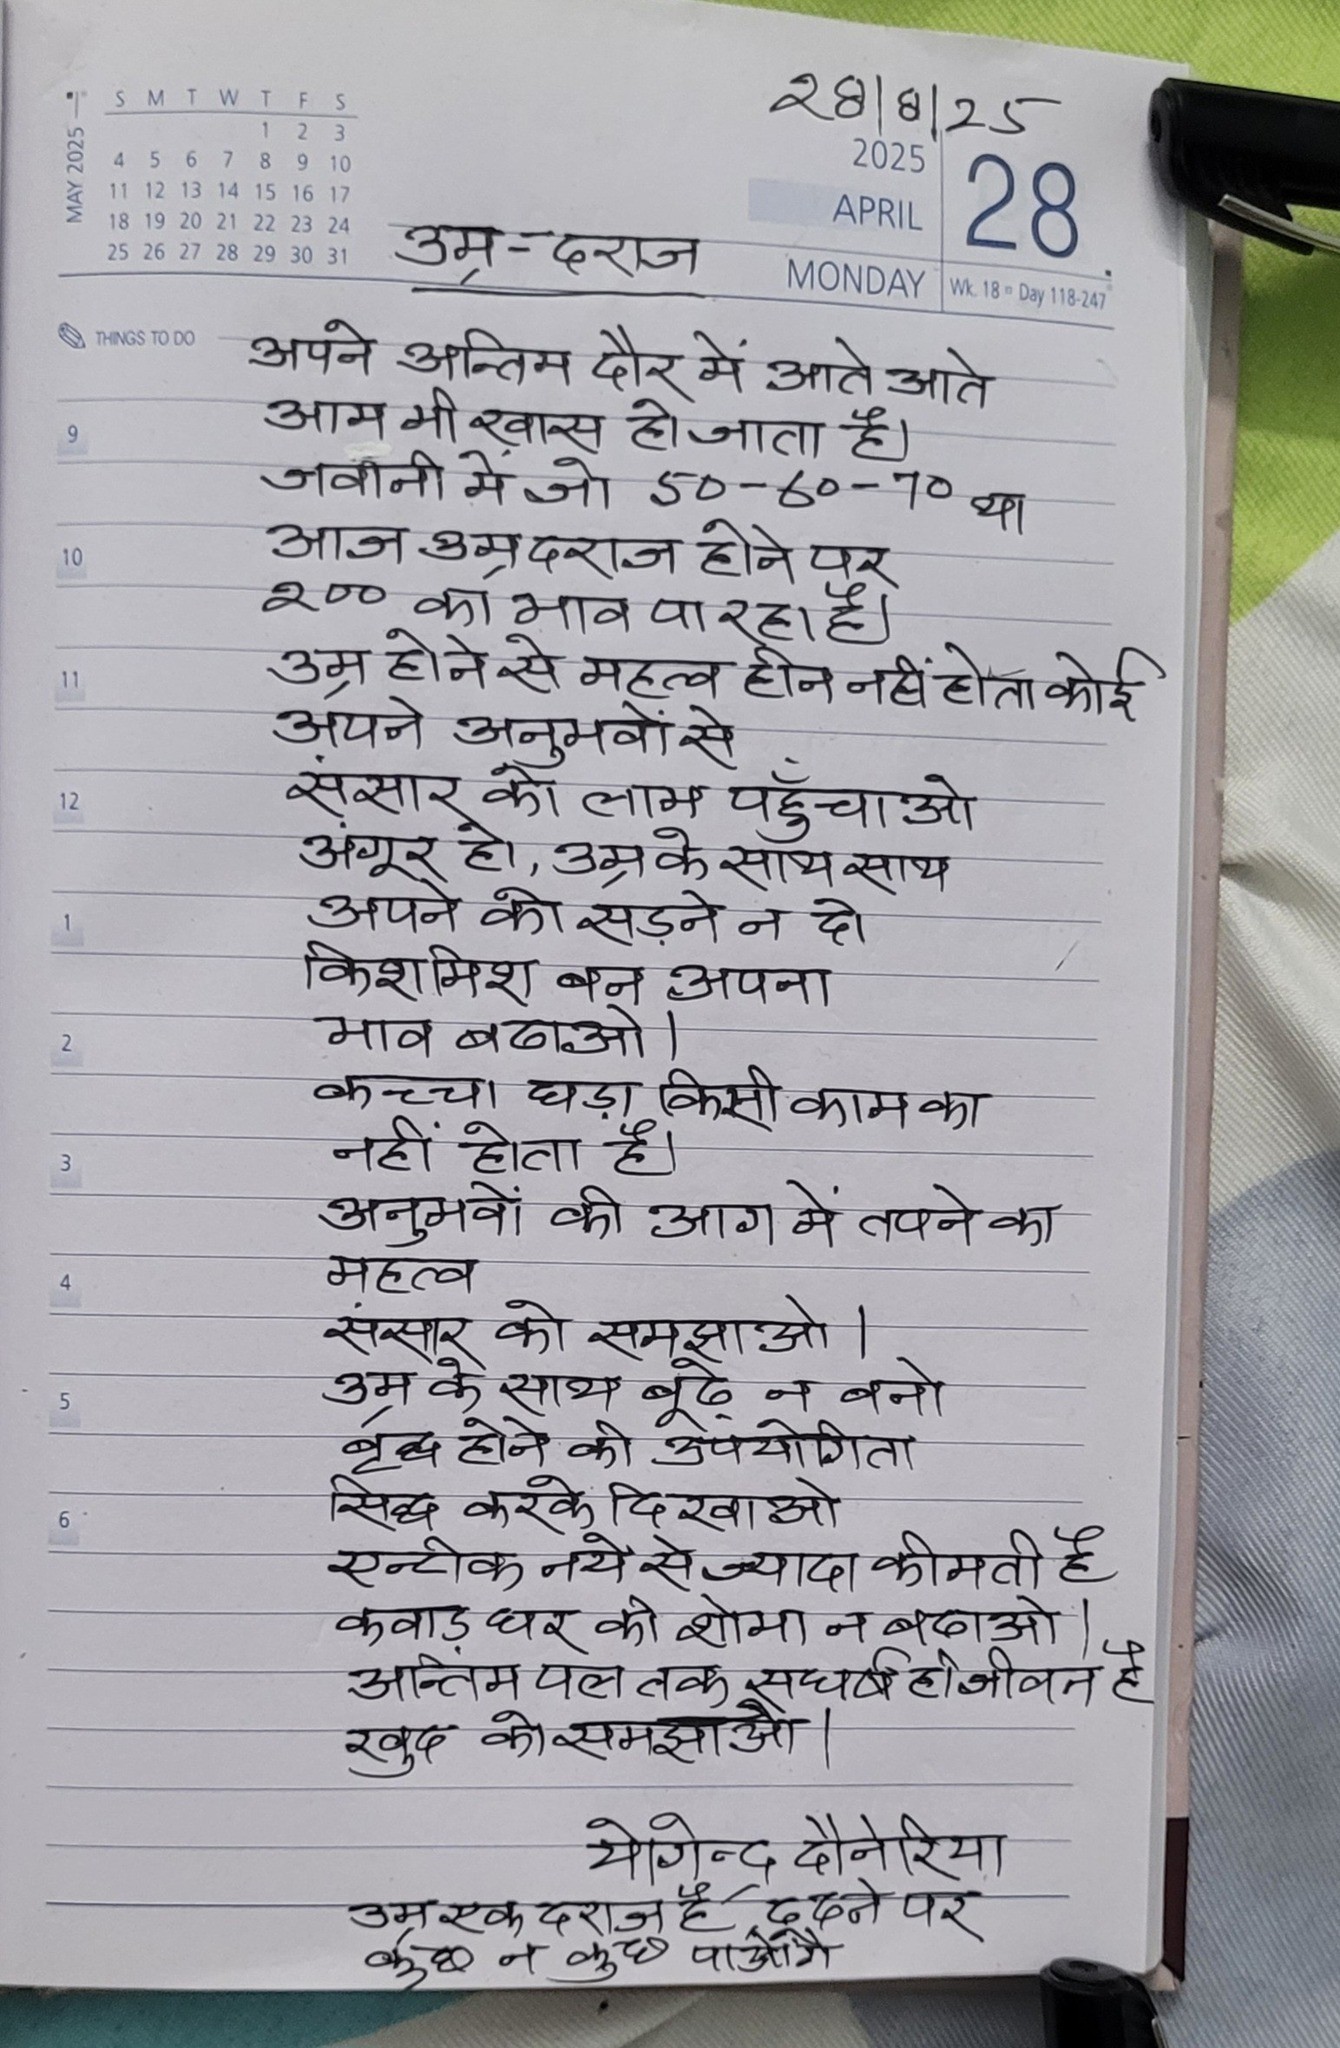 MAY 2025
S M T W T F S
1 2 3
4 5 6 7 8 9 10
11 12 13 14 15 16 17
18 19 20 21 22 23 24
25 26 27 28 29 30 31
28/8/25
2025
APRIL
28
MONDAY
Wk. 18 Day 118-247
उम्र-दराज
THINGS TO DO
अपने अन्तिम दौर में आते आते
आम भी ख़ास हो जाता है।
9
जवानी में जो 50-60-70 था
आज उम्रदराज होने पर
10
२०० का भाव पा रहा है।
उम्र होने से महत्व हीन नहीं होता कोई
11
अपने अनुभवों से
संसार को लाभ पहुँचाओ
12
अंगूर हो, उम्र के साथ साथ
अपने को सड़ने न दो
1
किशमिश बन अपना
भाव बढाओ।
2
कच्चा घड़ा किसी काम का
नहीं होता है।
3
अनुभवों की आग में तपने का
महत्व
4
संसार को समझाओ।
उम्र के साथ बूढ़े न बनो
5
बृद्ध होने की उपयोगिता
सिद्ध करके दिखाओ
6
एन्टीक नये से ज्यादा कीमती है
कवाड़ घर की शोभा न बढाओ।
अन्तिम पल तक संघर्ष ही जीवन है
खुद को समझाओ।
योगेन्द्र दौनेरिया
उम्र एक दराज है, ढूढने पर
कुछ न कुछ पाओगे